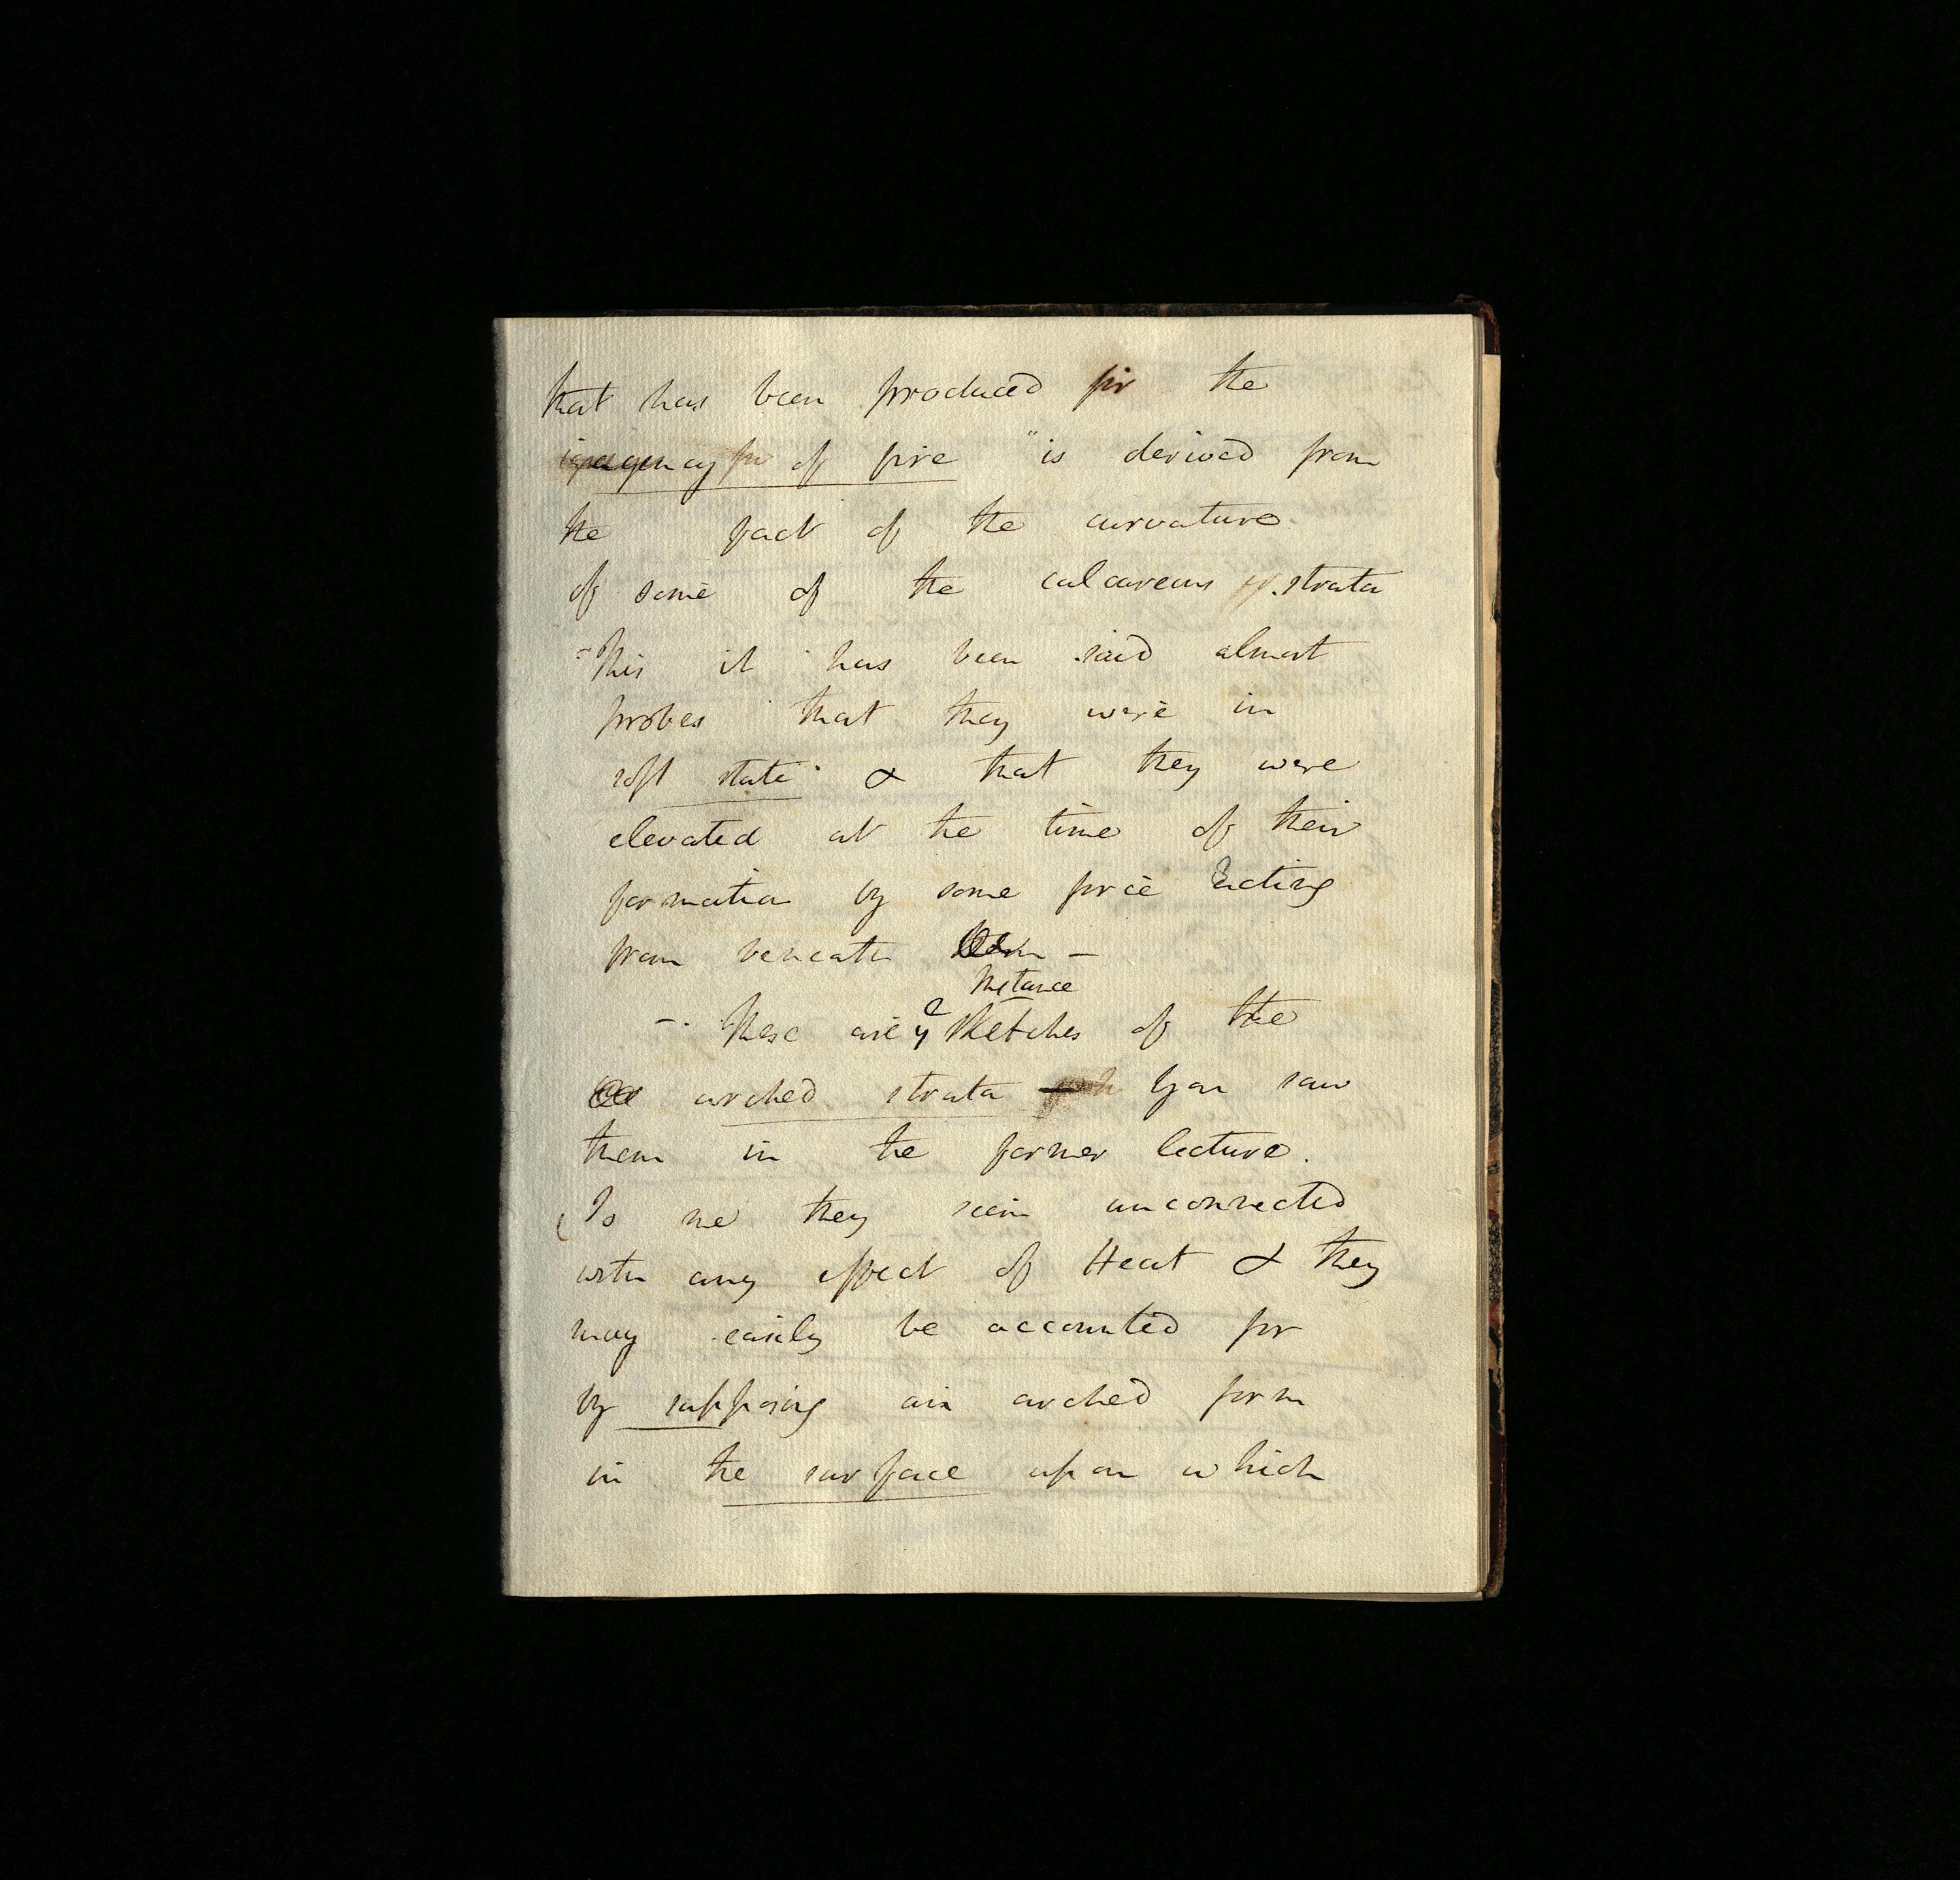 that has been produced for the
agency of fire "is derived from
the fact of the curvature
of some of the calcareous strata
- This it has been said almost
proves that they were in
soft state & that they were
elevated at the time of their
formation by some force acting
from beneath them -
Instance
-. These are ye sketches of the
arched strata You saw
them in the former lecture.
To me they seem unconnected
with any effect of Heat & they
may easily be accounted for
by supposing an arched form
in the surface upon which